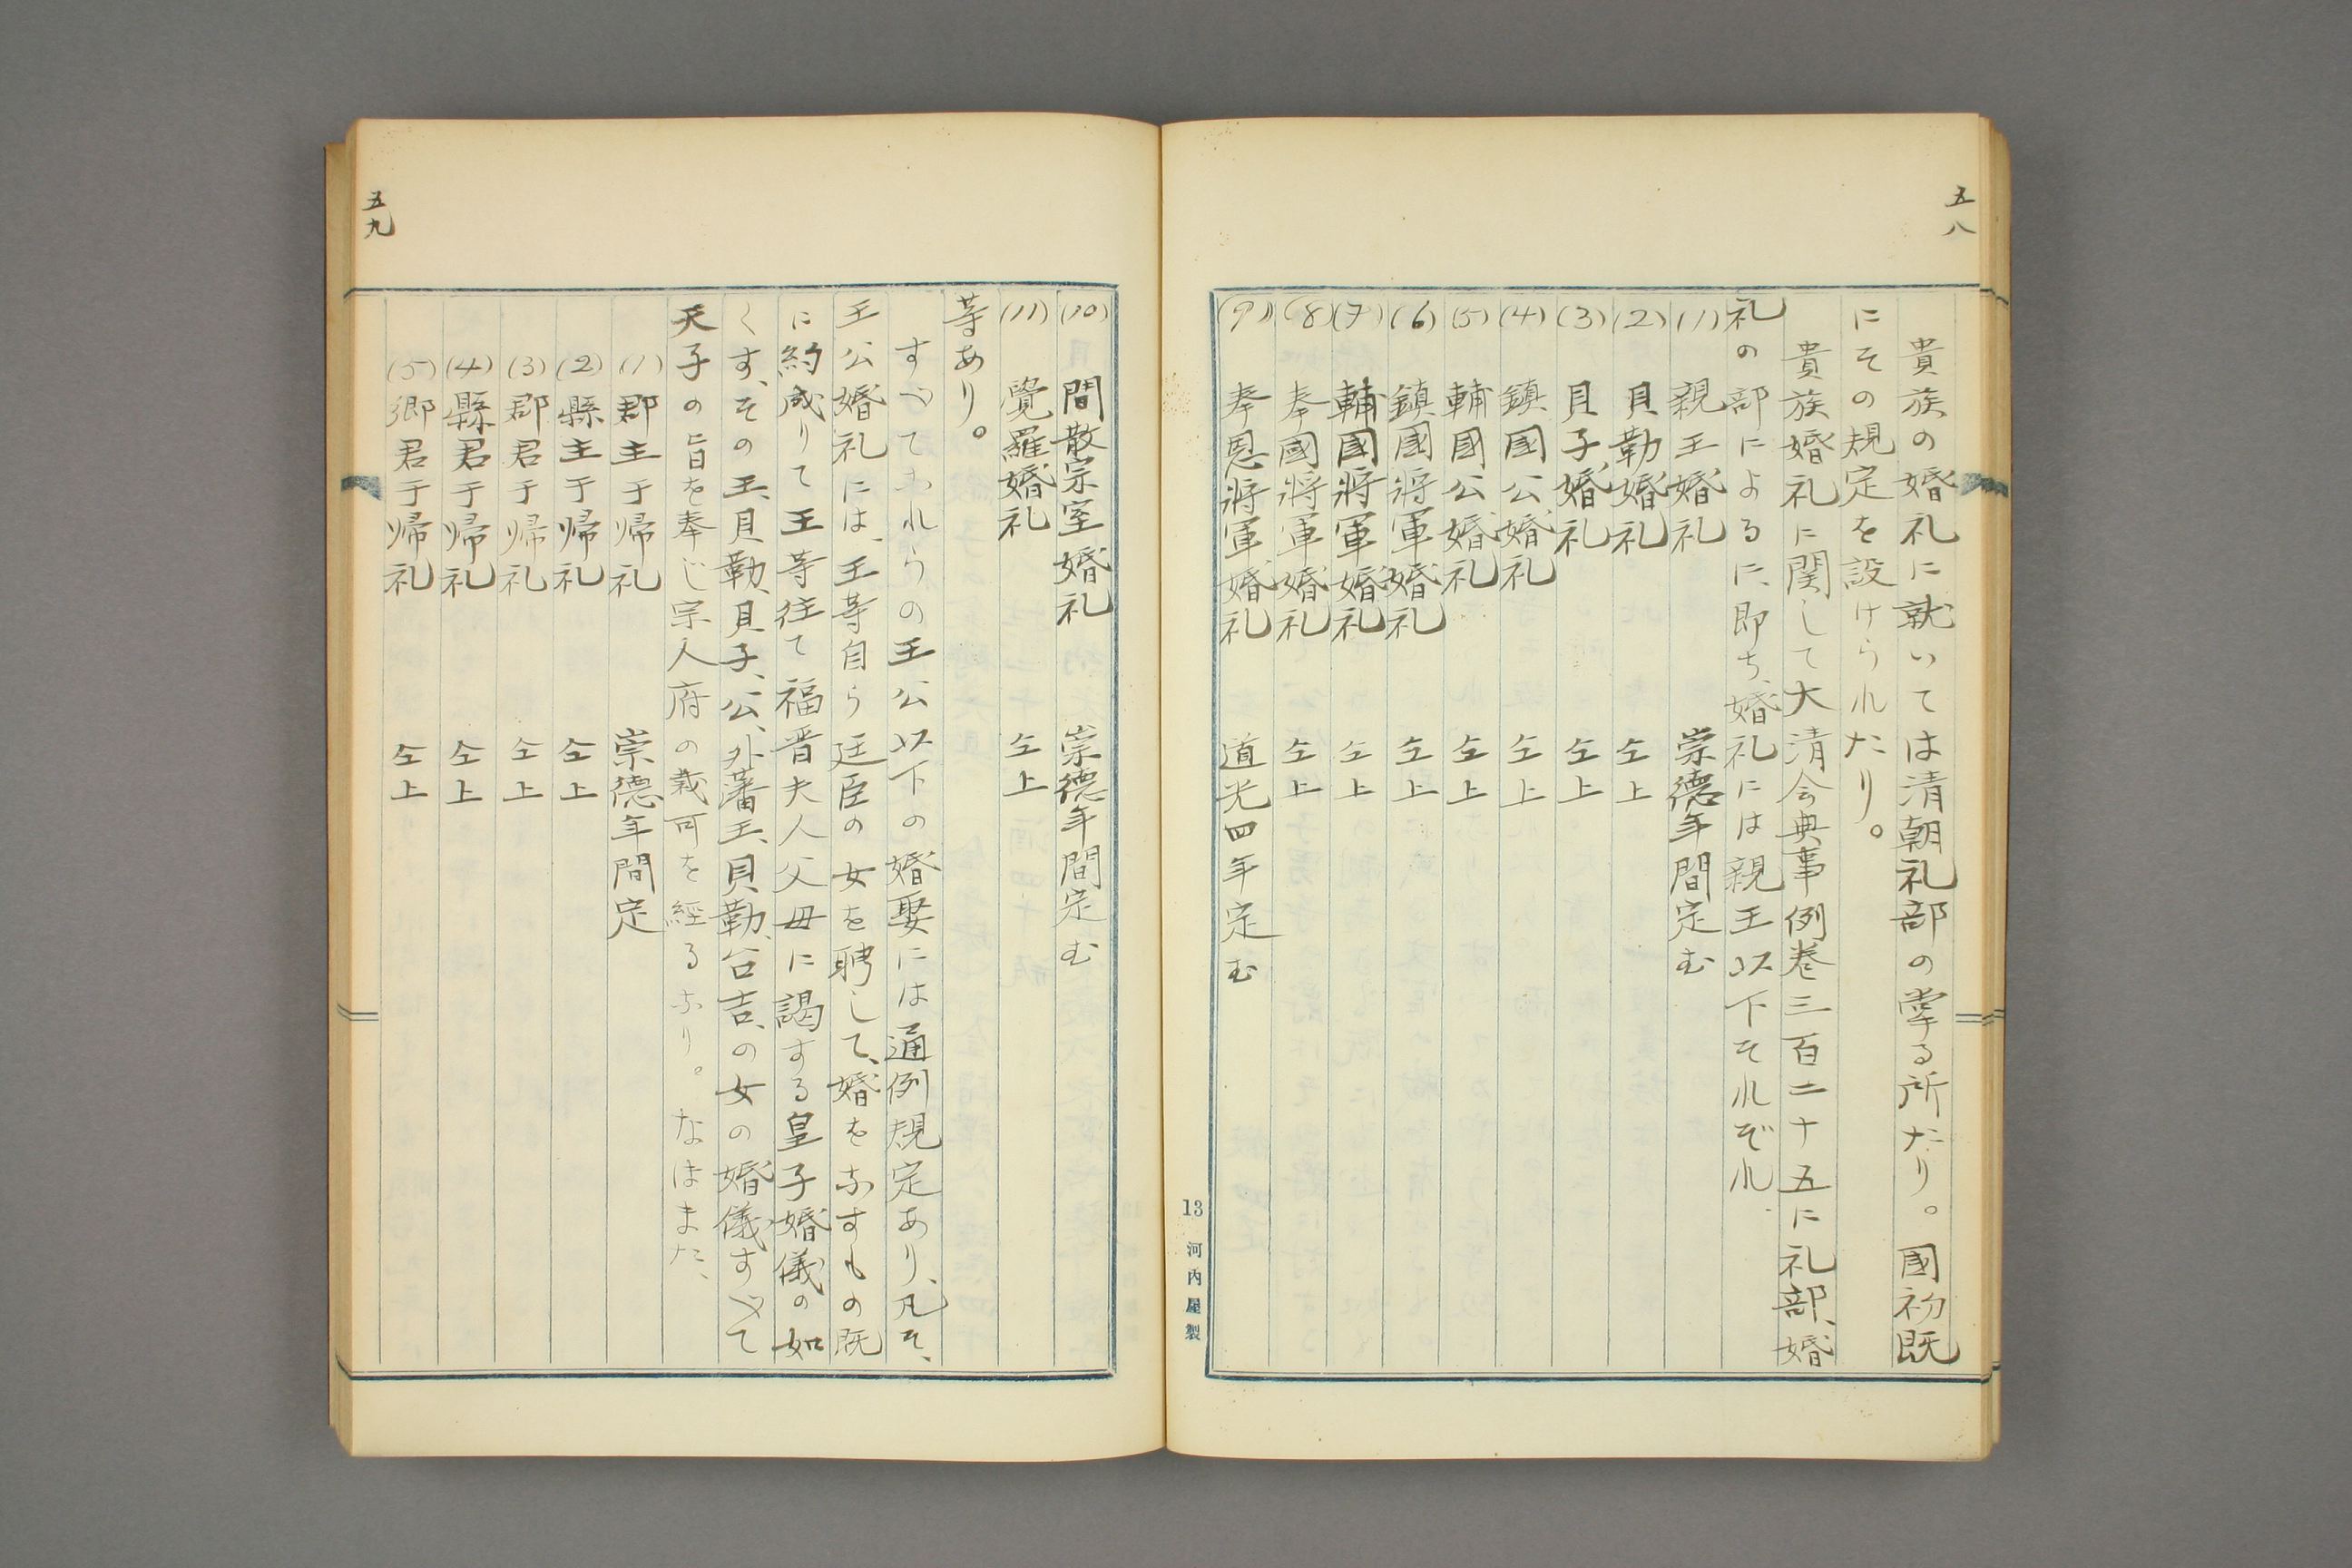 五八
貴族の婚礼に就いては清朝礼部の掌る所たり。國初既
にその規定を設けられたり。
貴族婚礼に関して大清会典事例巻三百二十五に礼部、婚
礼の部によるに、即ち、婚礼には親王以下それぞれ
(1) 親王婚礼 崇德年間定む
(2) 貝勒婚礼 仝上
(3) 貝子婚礼 仝上
(4) 鎮國公婚礼 仝上
(5) 輔國公婚礼 仝上
(6) 鎮國將軍婚礼 仝上
(7) 輔國將軍婚礼 仝上
(8) 奉國將軍婚礼 仝上
(9) 奉恩將軍婚礼 道光四年定む
13 河内屋製
(10) 間散宗室婚礼 崇德年間定む
(11) 覺羅婚礼 仝上
等あり。
すべてこれらの王公以下の婚娶には通例規定あり、凡そ、
王公婚礼には、王等自ら廷臣の女を聘して、婚をなすもの既
に約成りて王等往て福晋夫人父母に謁する皇子婚儀の如
くす、その王、貝勒、貝子、公、外藩王、貝勒、台吉、の女の婚儀すべて
天子の旨を奉じ宗人府の裁可を經るなり。なほまた、
(1) 郡主于帰礼 崇德年間定
(2) 縣主于帰礼 仝上
(3) 郡君于帰礼 仝上
(4) 縣君于帰礼 仝上
(5) 鄉君于帰礼 仝上
五九